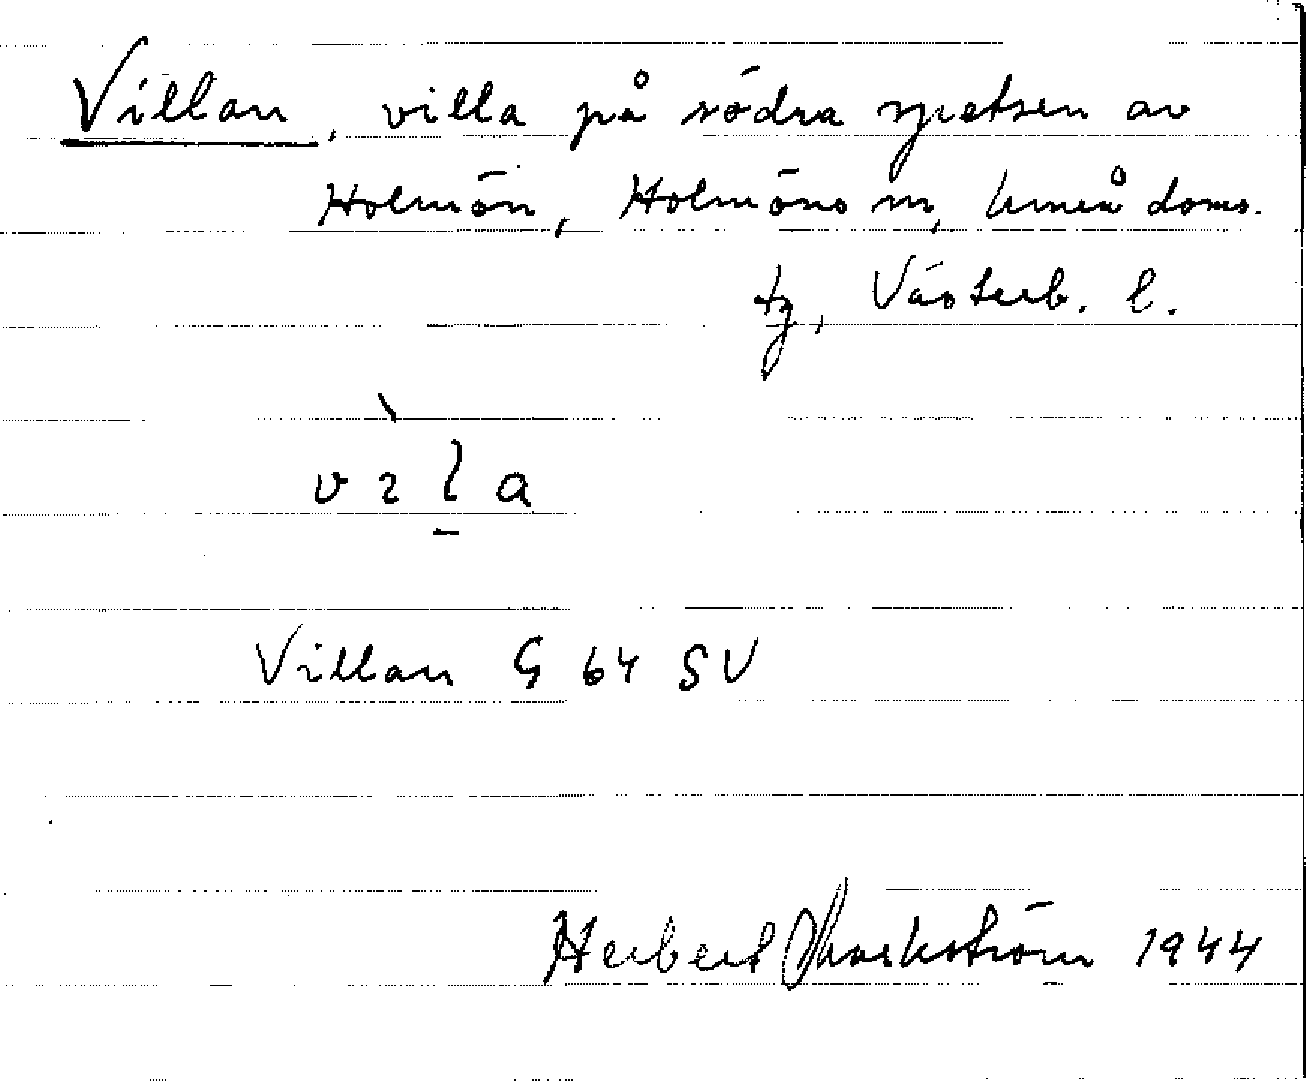 Villan, villa på södra spetsen av
Holmön, Holmöns sn, Umeå doms.
tg, Västerb. l.
Villan G 64 SV
Herbert 1944